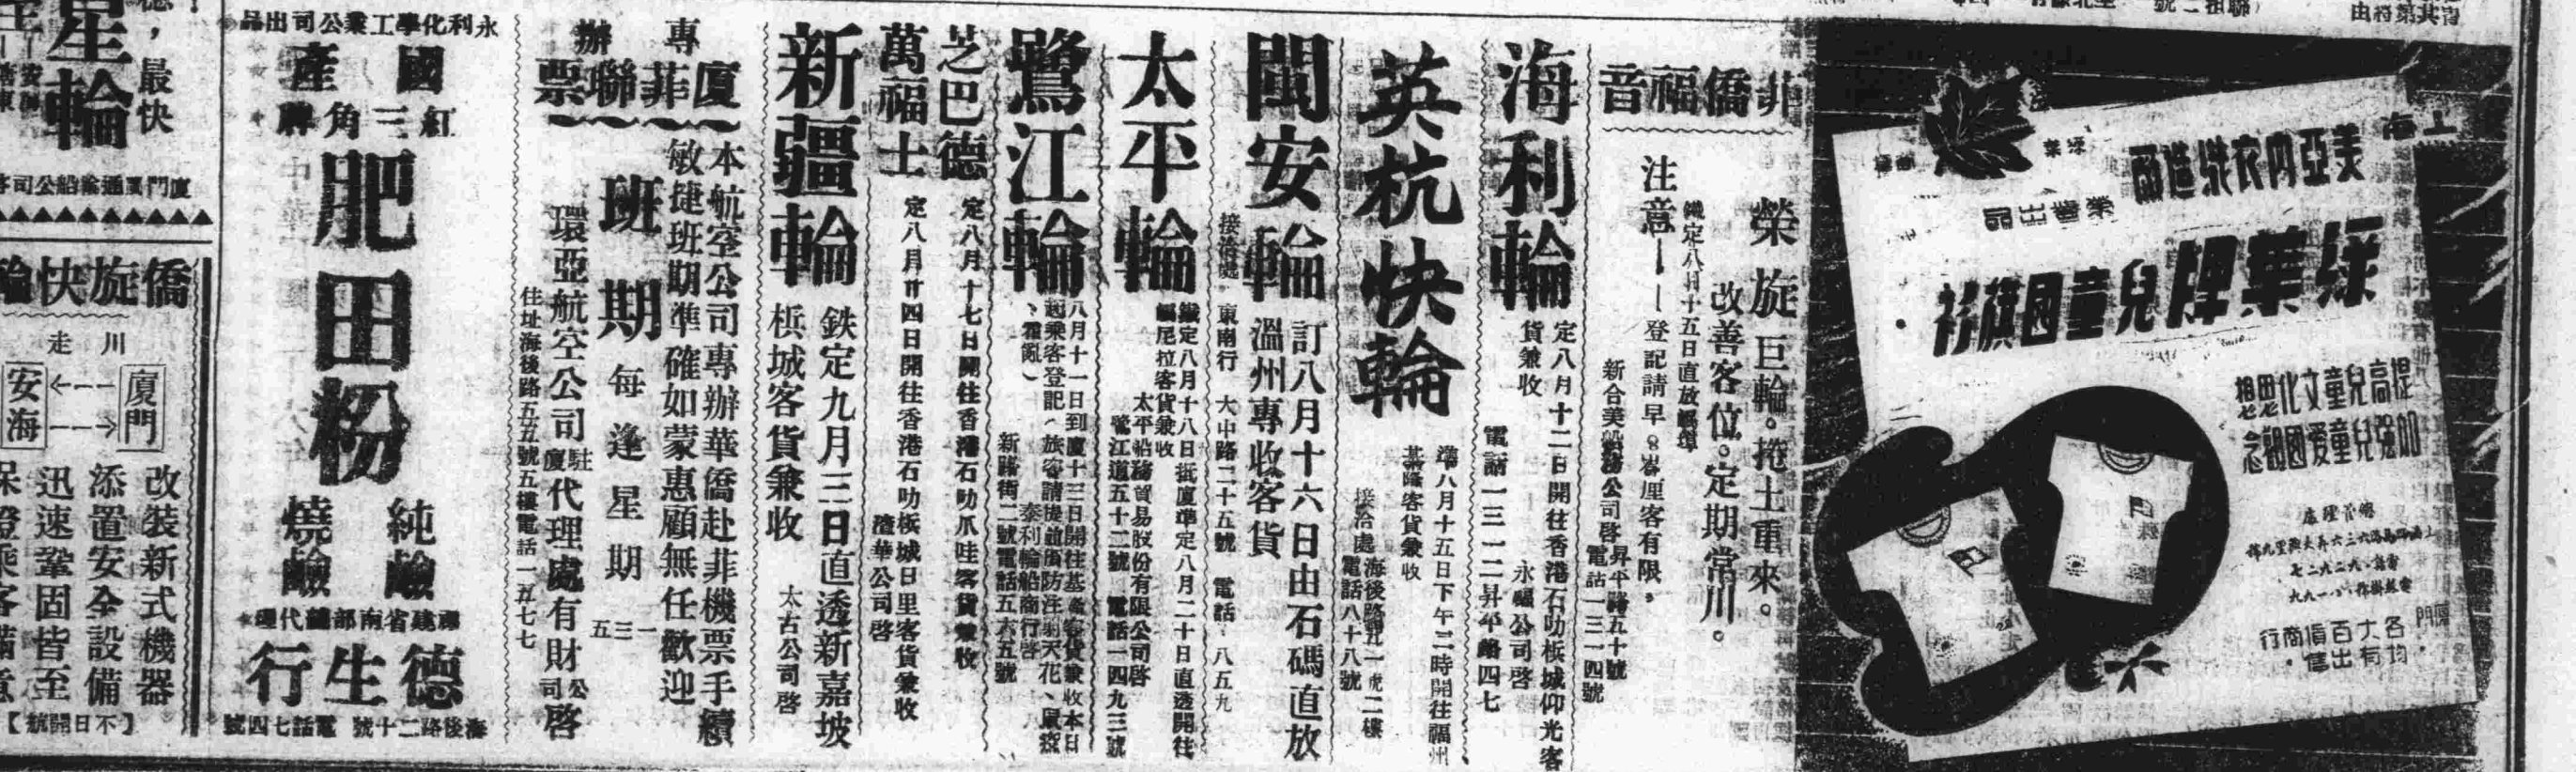 上海
美亞內衣織造廠
榮譽出品
綠葉
商標
綠葉牌兒童國旗衫
提高兒童文化思想
加強兒童愛國觀念
總管理處
廈門
各大百貨商行
均有出售
菲僑福音
榮旋巨輪。捲土重來。
改善客位。定期常川。
鐵定八月十五日直放
注意——登記請早。
客有限。
新合美船務公司啓
昇平路五十號
電話一三一四號
海利輪
定八月十二日開往香港石叻梹城仰光客
貨兼收
永
公司啓
電話一三一二昇平路四七
英杭快輪
準八月十五日下午二時開往福州
基隆客貨兼收
接洽處
海後路
一號二樓
電話八十八號
閩安輪
訂八月十六日由石碼直放
溫州專收客貨
接洽處
東南行
大中路二十五號
電話．八五九
太平輪
鐵定八月十八日抵廈準定八月二十日直透開往
岷尼拉客貨兼收
太平船務貿易股份有限公司啓
鷺江道五十二號
電話一四九三號
鷺江輪
八月十一日到廈十三日開往基隆客貨兼收本日
起乘客登記（旅客請提前預防注射天花、鼠疫
、霍亂）
泰利輪船商行啓
新路街二號電話五六五號
芝巴德
定八月十七日開往香港石叻爪哇客貨兼收
萬福士
定八月廿四日開往香港石叻梹城日里客貨兼收
渣華公司啓
新疆輪
鉄定九月三日直透新嘉坡
梹城客貨兼收
太古公司啓
專辦
廈菲聯票
本航空公司專辦華僑赴菲機票手續
敏捷班期準確如蒙惠顧無任歡迎
班期
每逢星期
一三五
環亞航空公司駐廈代理處有財公司啓
住址海後路五五號五樓電話一五七七
永利化學工業公司出品
國產
紅三角牌
肥田粉
純鹼
燒鹼
福建省南部總代理
德生行
海後路二十號
電話七四號
德，最快
星輪
廈門廈通輪船公司啓
僑旋快輪
川走
廈門
安海
改裝新式機器
添置安全設備
迅速鞏固皆至
保證乘客滿意
【不日開航】